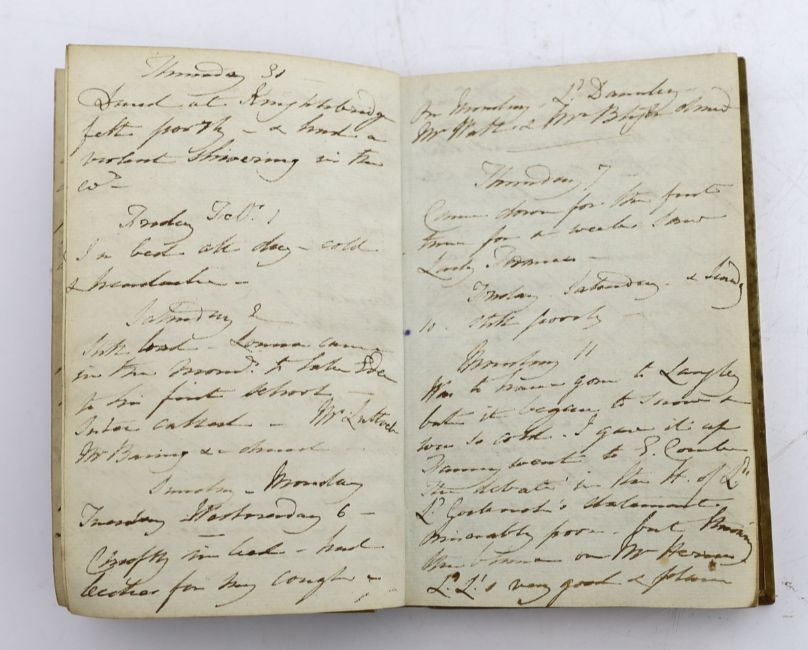 Thursday 31
Dined at Knightsbridge
felt poorly - & had a
violent shivering in the
Friday Feb.y 1
In bed all day - cold
& headache -
Saturday 2
Still bad - came
in the to take
to his first school -
called - Mr Luttrell
Mr Baring & dined
Sunday - Monday
Tuesday Wednesday 6 -
Chiefly in bed - had
leeches for my cough -
On Monday - Ld Darnley
Mr Watt & Mrs Bligh dined
Thursday 7
Came down for the first
time for a week. Saw
Lady
Friday. Saturday. & Sunday
10. Still poorly -
Monday 11
Was to have gone to Langley
but it began to snow &
was so cold. I gave it up
went to
The debate in the H. of Lds
Ld Goderich's statement
miserably poor - but throwing
the blame on Mr Herries
Ld L's very good & plain